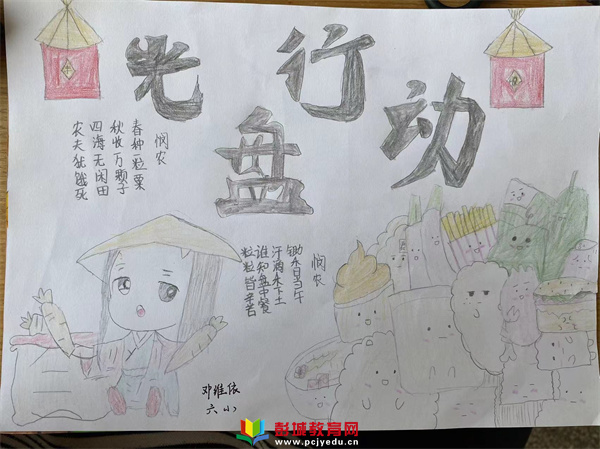 光盘行动
悯农
春种一粒粟
秋收万颗子
四海无闲田
农夫犹饿死
悯农
锄禾日当午
汗滴禾下土
谁知盘中餐
粒粒皆辛苦
邓维依
六小
彭城教育网
www.pcjyedu.cn